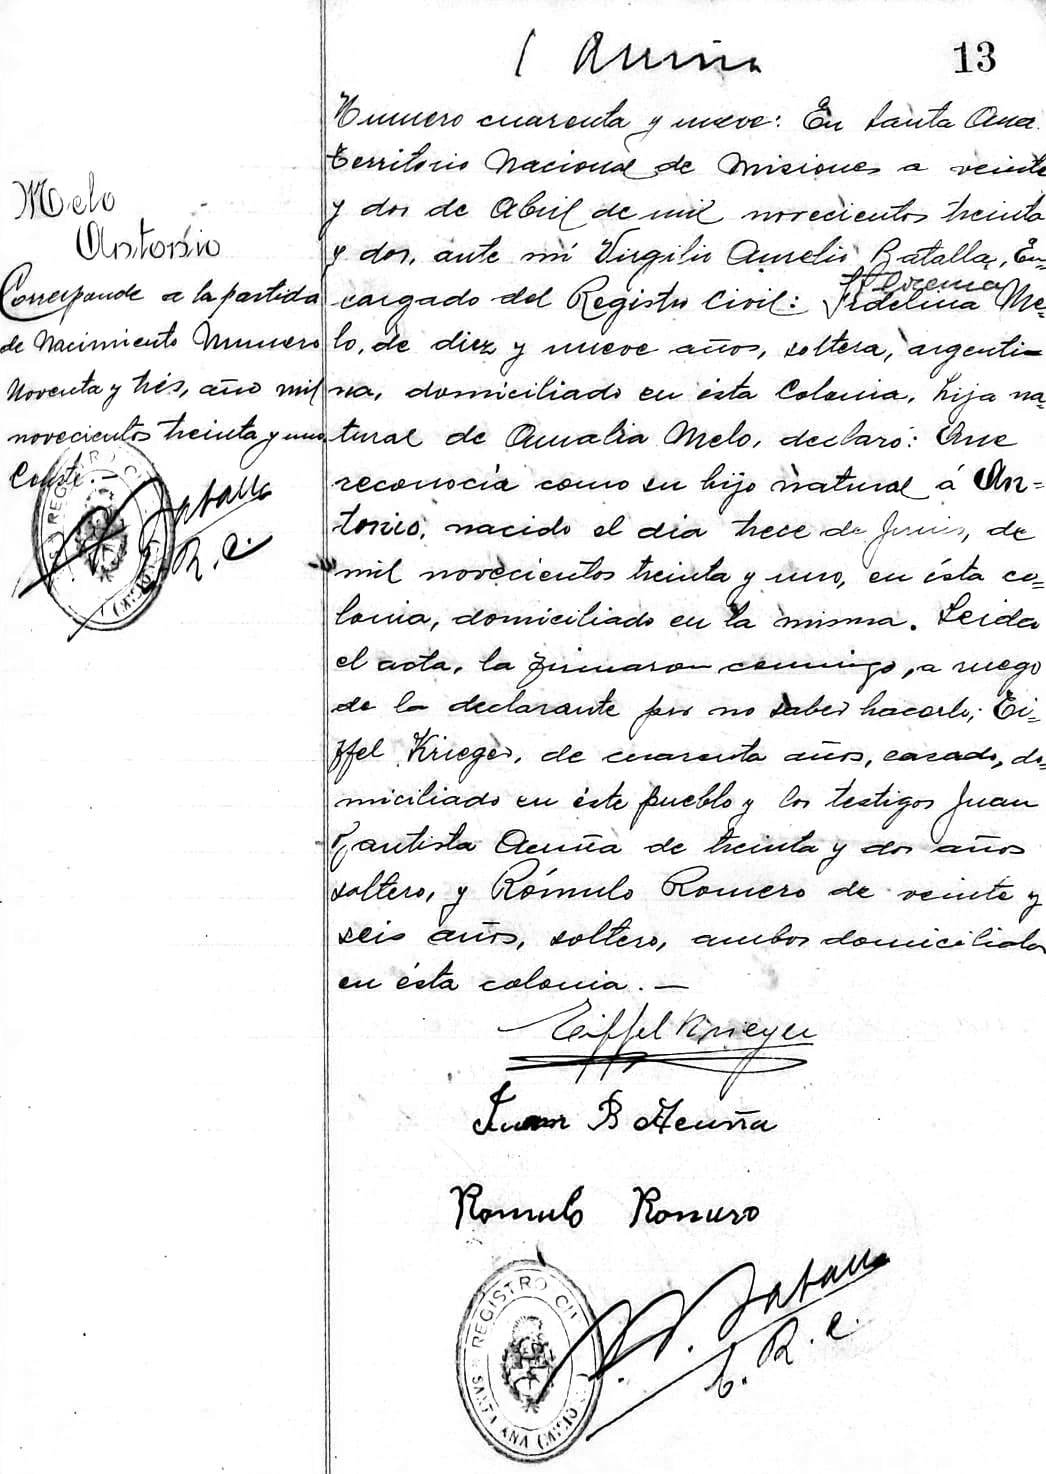 13
Melo
Antonio
Corresponde a la partida
de Nacimiento Numero
Noventa y trés, año mil
novecientos treinta y uno
Conste. —
Batalla
E. R. C.
Numero cuarenta y nueve: En Santa Ana
Territorio Nacional de Misiones a veinte
y dos de Abril de mil novecientos treinta
y dos, ante mi Virgilio Aurelio Batalla, En=
Morena
cargado del Registro Civil: Fidelina Me=
lo, de diez y nueve años, soltera, argenti=
na, domiciliado en ésta Colonia, hija na=
tural de Amalia Melo, declaró: Que
reconocía como su hijo natural á An=
tonio, nacido el dia trece de Junio, de
mil novecientos treinta y uno, en ésta co=
lonia, domiciliado en la misma. Leida
el acta, la firmaron conmigo, a ruego
de la declarante por no saber hacerlo; Ei=
ffel Krieger, de cuarenta años, casado, do=
miciliado en éste pueblo y los testigos Juan
Bautista Acuña de treinta y dos años
soltero, y Rómulo Romero de veinte y
seis años, soltero, ambos domiciliados
en ésta colonia. —
Eiffel Krieger
Juan B Acuña
Romulo Romero
REGISTRO CIVIL
SANTA ANA (MISIONES)
Batalla
E. R. C.